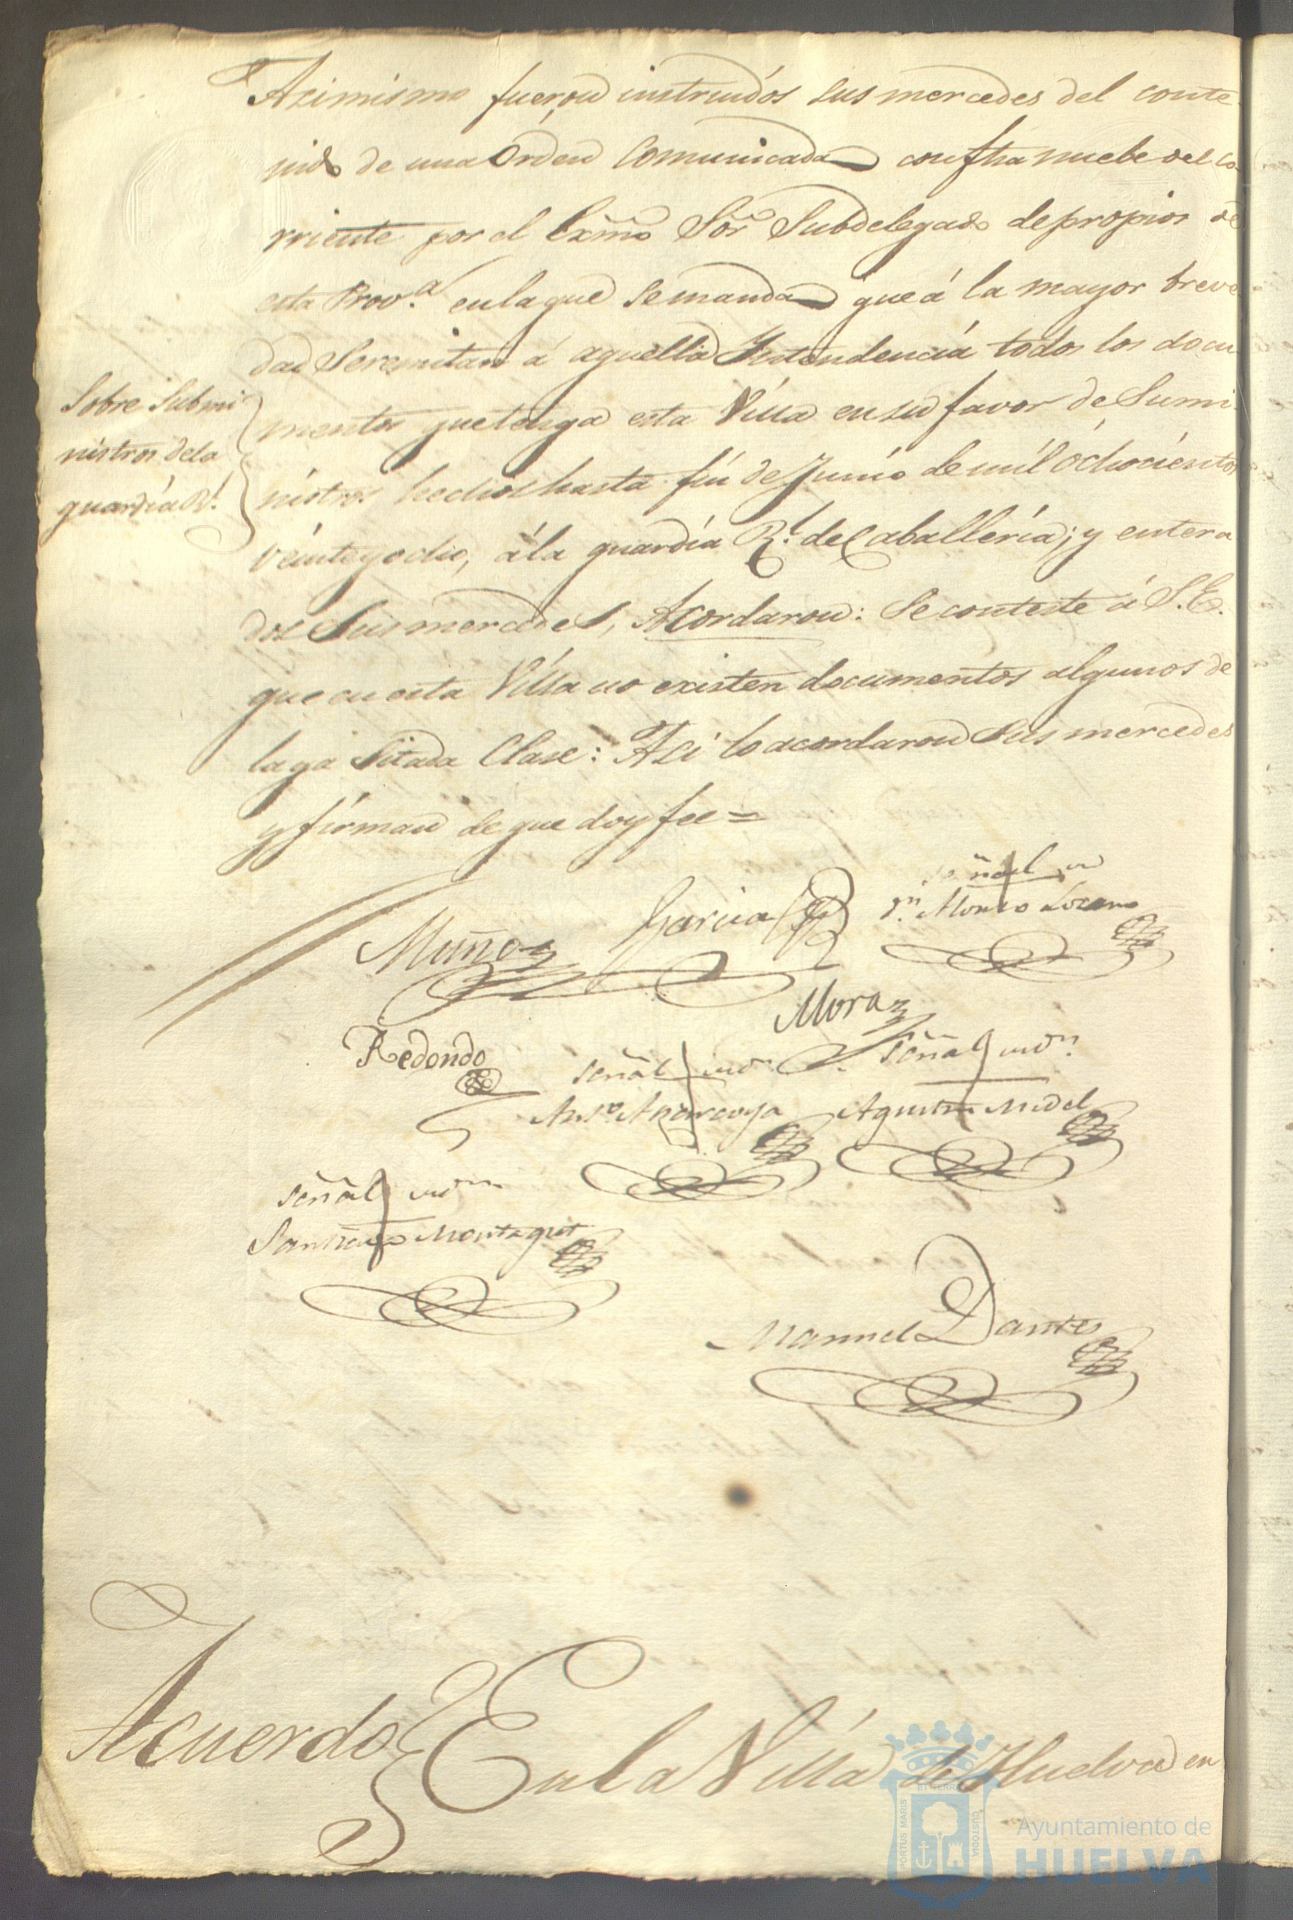 Asimismo fueron instruidos sus mercedes del conte
nido de una Orden Comunicada con fha nuebe del co
rriente por el Exmo Sor Subdelegado de propios de
esta Prov.a en la que se manda que á la mayor breve
dad Se remitan á aquella Yntendencia todos los docu
mentos que tenga esta Villa en su favor de Sumi
Sobre Submi
nistros de la
guardia Rl.
nistros hechos hasta fin de Junio de mil óchocientos
veinte y ocho, á la guardia Rl. de Caballería; y entera
dos Sus mercedes, Acordaron: Se conteste á S.E.
que en esta Villa no existen documentos algunos de
la ya Sitada Clase: Asi lo acordaron Sus mercedes
y firman de que doy fee =
Muñoz
Garcia
Señal de
Dn. Alonso Lozano
Mora
Redondo
Señal de
Anto.
Señal de
Agustin Midel
Señal de
Santiago Montagut
Manuel Dante
Acuerdo
En la Villa de Huelva en
PORTUS MARIS
ET TERRAE
CUSTODIA
Ayuntamiento de
HUELVA